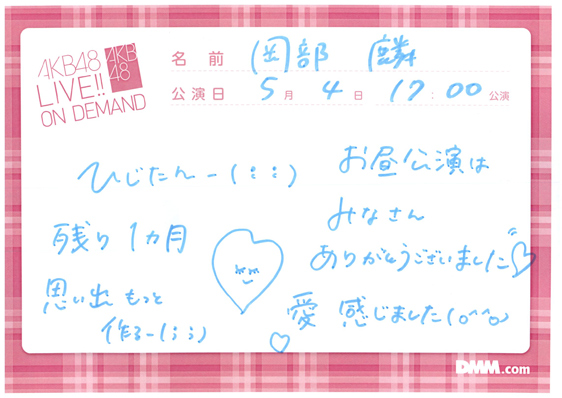 AKB48
LIVE!!
ON DEMAND
AKB
48
名前 岡部 麟
公演日 5月 4日 17:00 公演
ひじたんー(;;)
残り 1カ月
思い出 もっと
作るー(;;)
お昼公演は
みなさん
ありがとうございました♡
愛 感じました(o^^o)
DMM.com